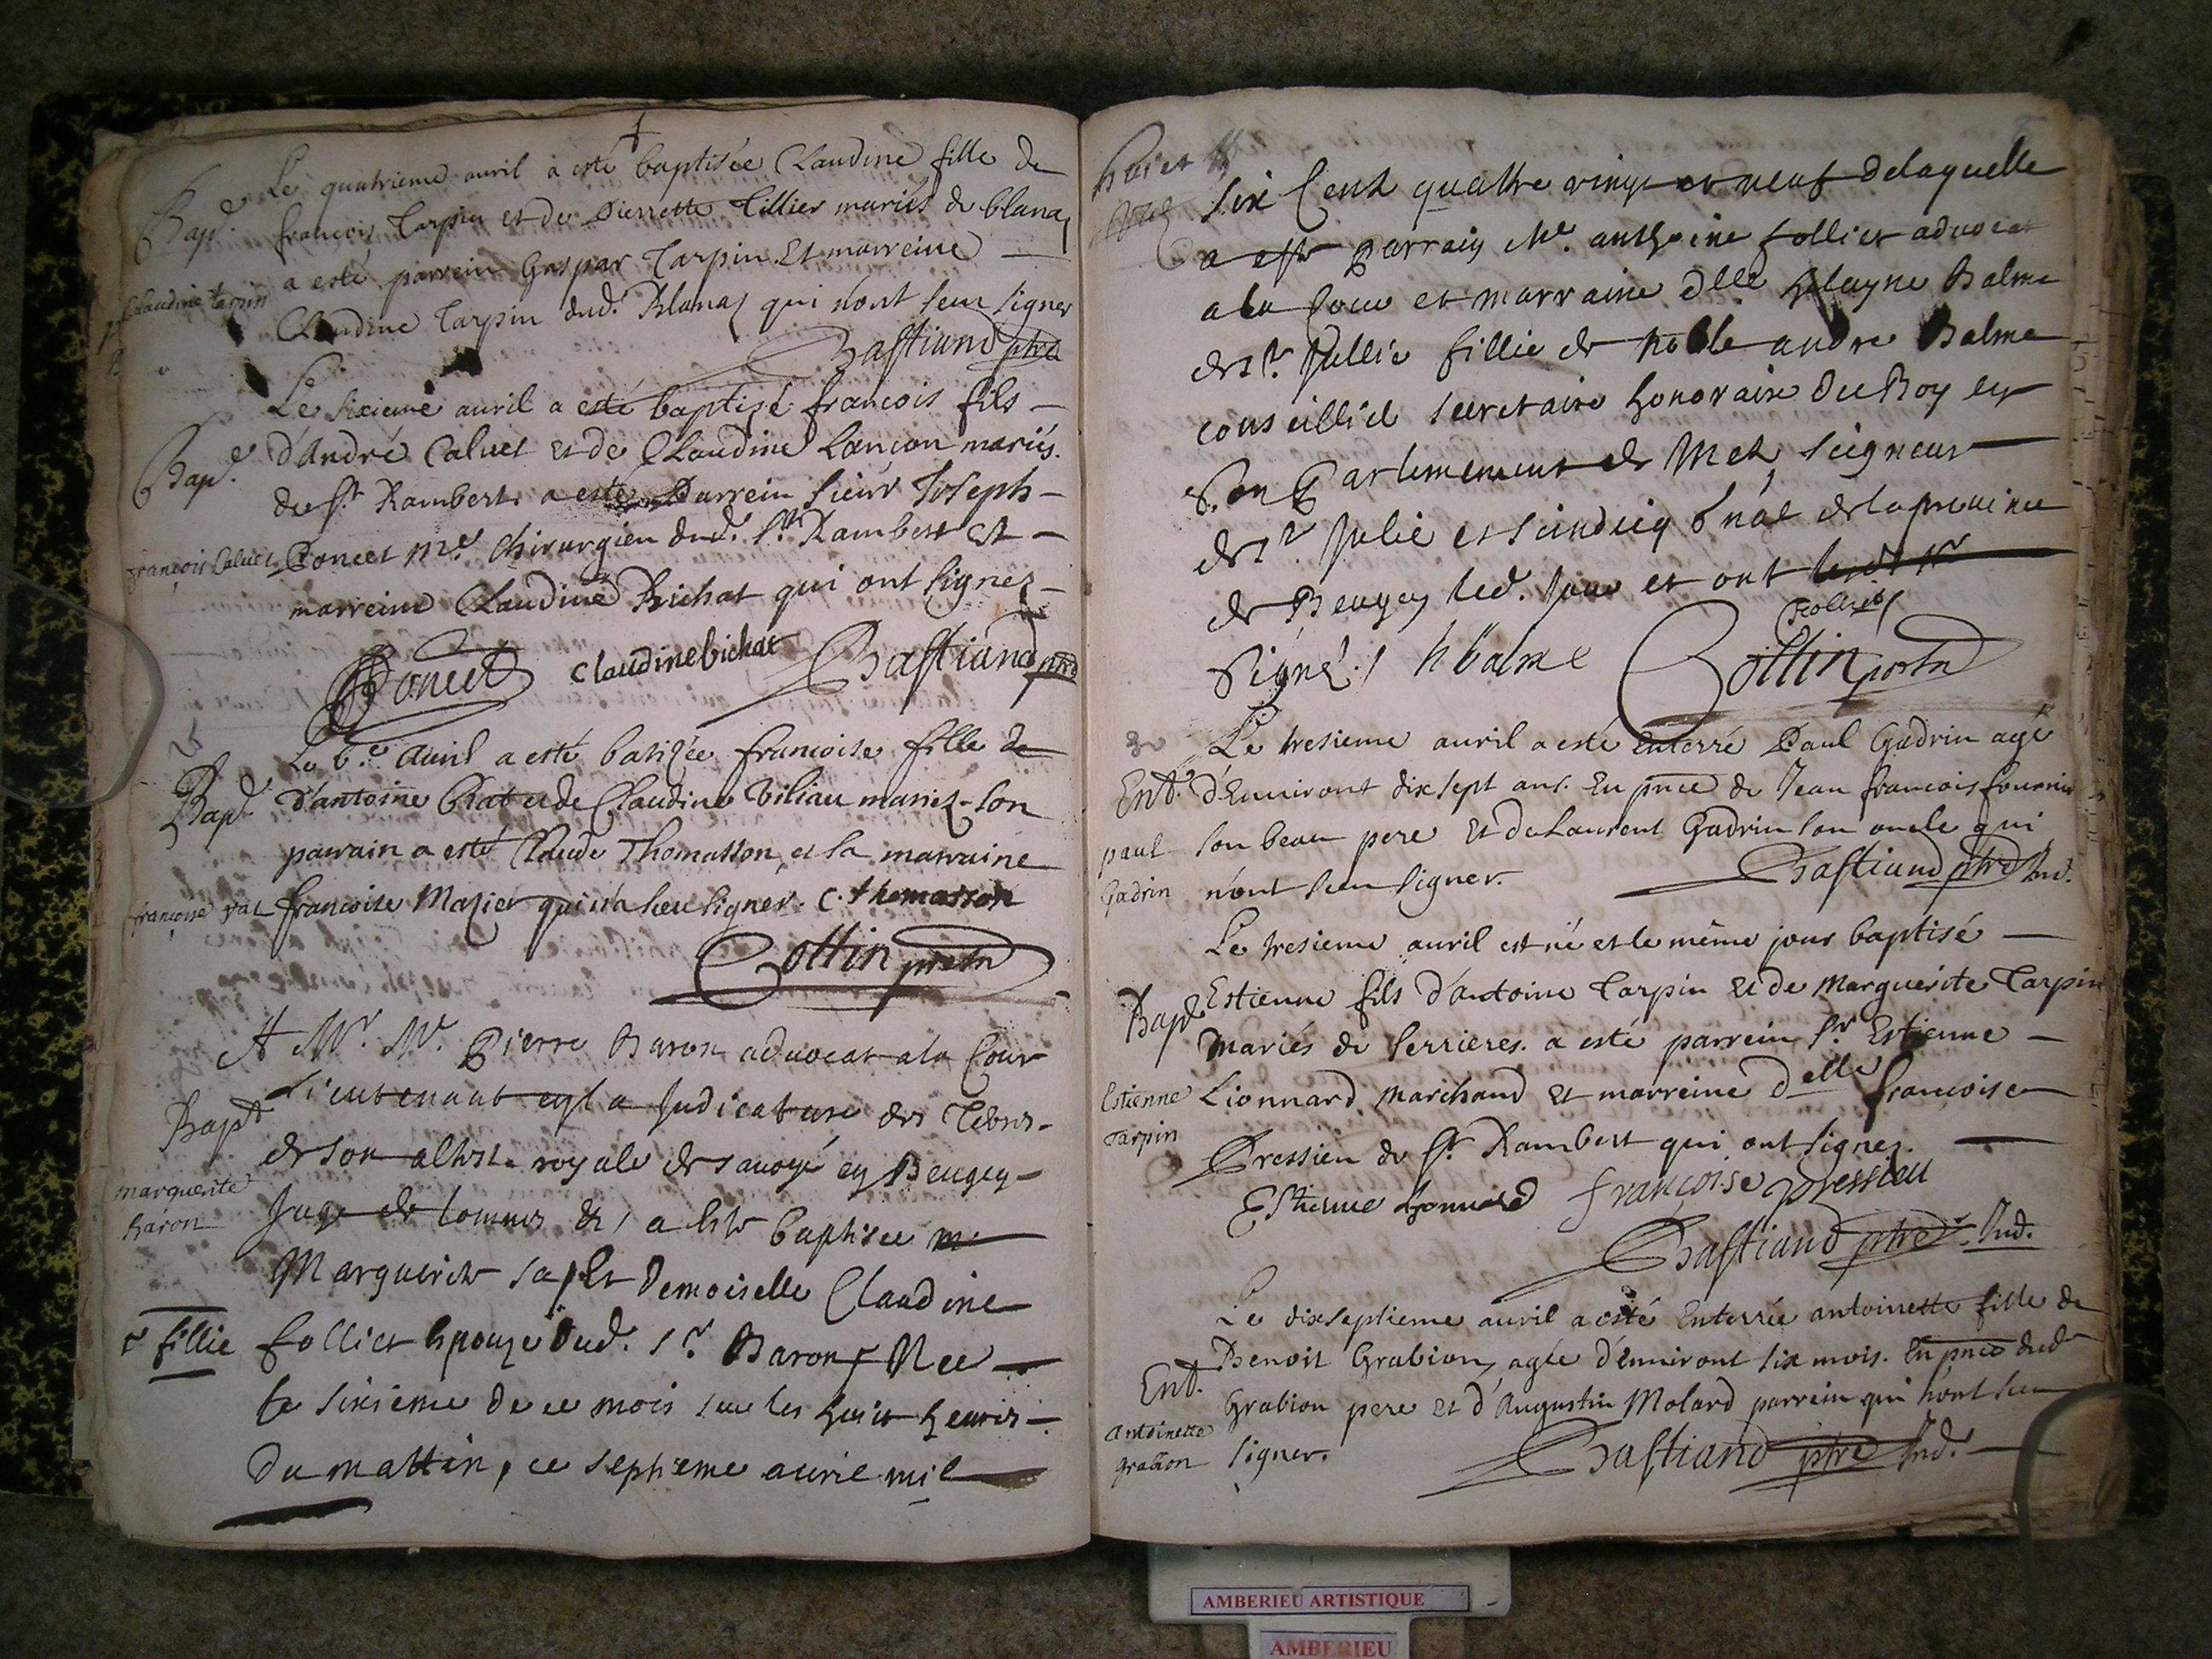 Bap.e
Le quatrieme auril à esté baptisée Claudine fille de
françois Tarpin et de Pierrette Tillier mariés de blanaz
a esté parrein Gaspar Tarpin Et marreine
Claudine tarpin
Claudine Tarpin dud. Blanaz qui n'ont seu signer
Bastiand ptre
Le sixieme auril a esté baptisé francois fils
Bap.e
d'André Caluet et de Claudine Lancon mariés.
de st. Rambert. a esté Parrein sieur Joseph
francois Caluet
Poncet me. chirurgien dud. st. Rambert Et
marreine Claudine Bichat qui ont signez
Poncet claudine bichat Bastiand ptre
Le 6.e auril a esté batizée francoise fille de
Bap.
d'antoine Rat et de Claudine Viliau mariez son
parrain a esté Claude Thomasson et la marraine
francoise rat
francoise Mazier qui n'a seu signer. C. thomasson
Cottin prestre
A Mr. Me. Pierre Baron aduocat a la Cour
Lieutenant en la Judicature des Terres
Bap.t
de son altesse royale de sauoye en Beugey
marguerite
baron
Juge de &c a este baptisee
Marguerite sa Demoiselle Claudine
+ fillie
follier Epouze dud. sr. Baron Nee
le sixieme de ce mois sur les huit heures
du mattin, ce septieme auril mil
six Cent quattre vingt et neuf de laquelle
a este parrain Me. anthoine follier aduocat
a la Cour et marraine dlle helayne Balme
de st. Jullie fillie de noble andre Balme
conseillié secretaire honoraire du Roy en
son Parlemement de Metz seigneur
de st Julie et scindicq gnal de la prouince
de Beugey led. Jour et ont
signé. h balme follier Cottin prestre
Le tresieme auril a esté enterré Paul Gadrin agé
Ent.
d'Enuiront dix sept ans. En pnce de Jean francois fournier
paul
Gadrin
son beau pere Et de Laurent Gadrin son oncle qui
n'ont seu signer. Bastiand ptre Ind.
Le tresieme auril est né et le même jour baptisé
Bap.e
Estienne fils d'antoine Tarpin Et de Marguerite Tarpin
Mariés de Serrieres. a esté parrein sr. Estienne
Estienne
Tarpin
Lionnard Marchand Et marreine delle francoise
Pressieu de st. Rambert qui ont signez.
Estienne Lionnard françoise pressieu
Bastiand ptre Ind.
Le dixseptieme auril a esté Enterrée antoinette fille de
Ent.
Benoit Grabion, agée d'enuiront six mois. En pnce dud
Grabion pere et d'Augustin Molard parrein qui n'ont seu
Antoinette
grabion
signer. Bastiand ptre Ind.
AMBERIEU ARTISTIQUE
AMBERIEU